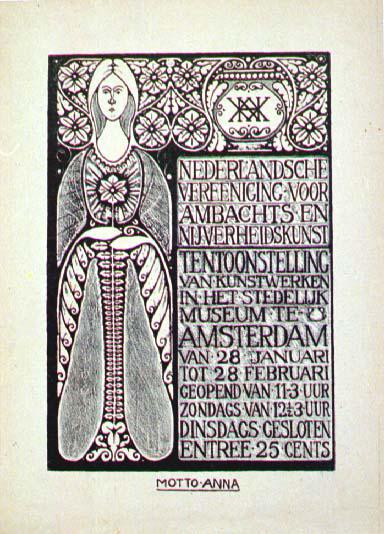 NEDERLANDSCHE
VEREENIGING·VOOR
AMBACHTS·EN
NIJVERHEIDSKUNST
TENTOONSTELLING
VAN·KUNSTWERKEN
IN·HET·STEDELIJK
MUSEUM·TE·
AMSTERDAM
VAN 28 JANUARI
TOT 28 FEBRUARI
GEOPEND VAN 11-3·UUR
ZONDAGS VAN 12½-3·UUR
DINSDAGS GESLOTEN
ENTREE·25 CENTS
MOTTO·ANNA